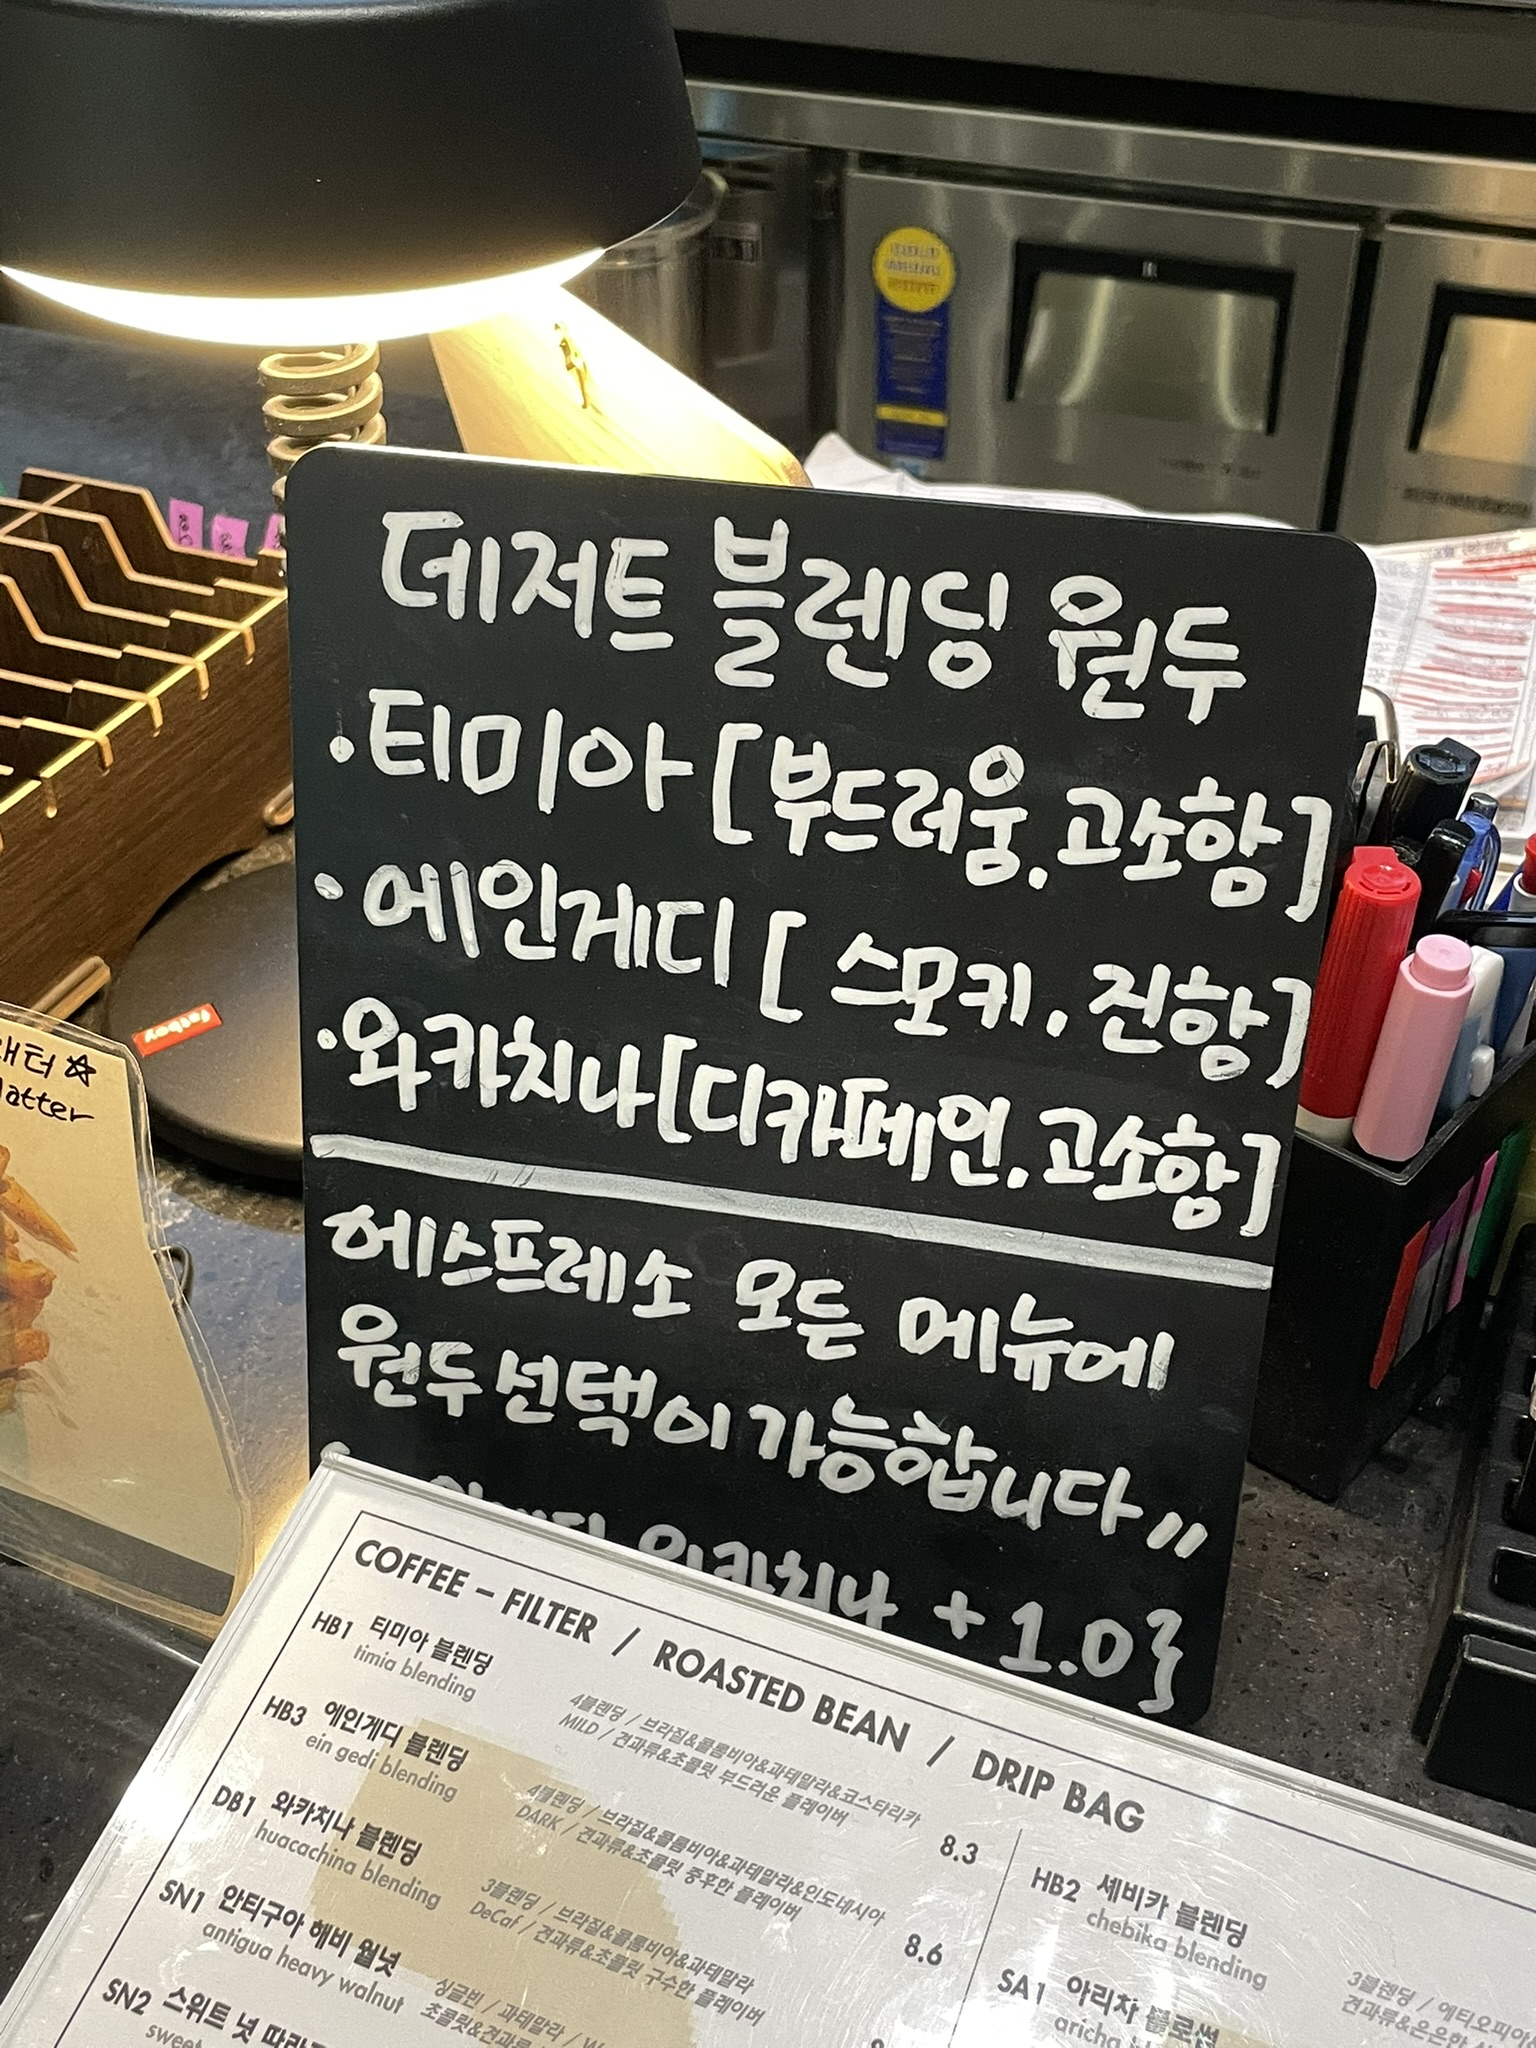 데저트 블렌딩 원두
·티미아 [부드러움, 고소함]
·에인게디 [스모키, 진함]
·와카치나 [디카페인, 고소함]
에스프레소 모든 메뉴에
원두선택이 가능합니다〃
와카치나 +1.0}
fatboy
latter
COFFEE – FILTER / ROASTED BEAN / DRIP BAG
HB1 티미아 블렌딩
timia blending
4블렌딩 / 브라질&콜롬비아&과테말라&코스타리카
MILD / 견과류&초콜릿 부드러운 플레이버
8.3
HB3 에인게디 블렌딩
ein gedi blending
4블렌딩 / 브라질&콜롬비아&과테말라&인도네시아
DARK / 견과류&초콜릿 중후한 플레이버
8.6
DB1 와카치나 블렌딩
huacachina blending
3블렌딩 / 브라질&콜롬비아&과테말라
DeCaf / 견과류&초콜릿 구수한 플레이버
SN1 안티구아 해비 월넛
antigua heavy walnut
싱글빈 / 과테말라 /
초콜릿&견과류
SN2 스위트 넛
sweet
HB2 세비카 블렌딩
chebika blending
3블렌딩 / 에티오피아
견과류&은은한
SA1 아리차 블로썸
aricha